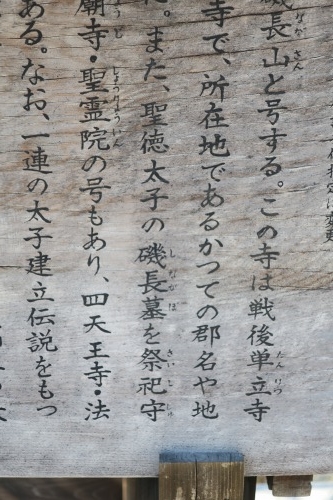 磯長山と号する。この寺は戦後単立寺
寺で、所在地であるかつての郡名や地
た。また、聖徳太子の磯長墓を祭祀守
廟寺・聖霊院の号もあり、四天王寺・法
ある。なお、一連の太子建立伝説をもつ